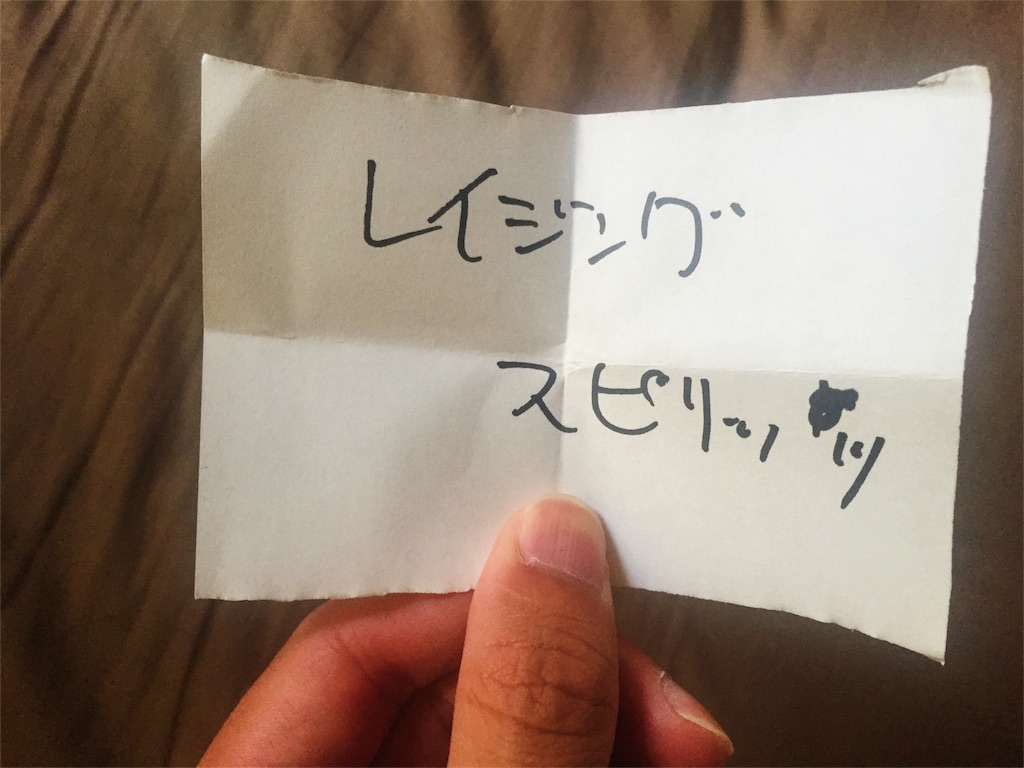 レイジング
スピリッツ